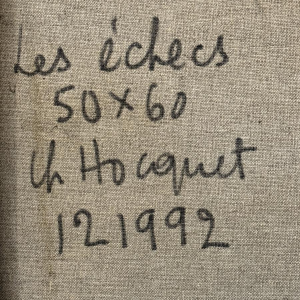 Les échecs
50x60
Ch Hocquet
12 1992